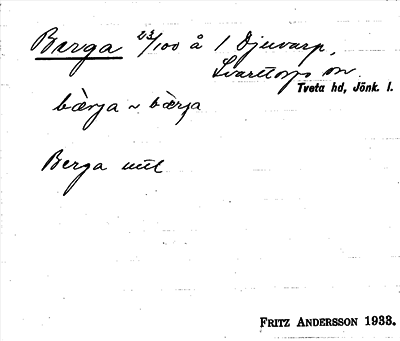 Berga 23/100 å 1 Djuvarp,
Svarttorps sn
Tveta hd, Jönk. l.
bæ̀rja ~ bæ̀rja
Berga
FRITZ ANDERSSON 1933.